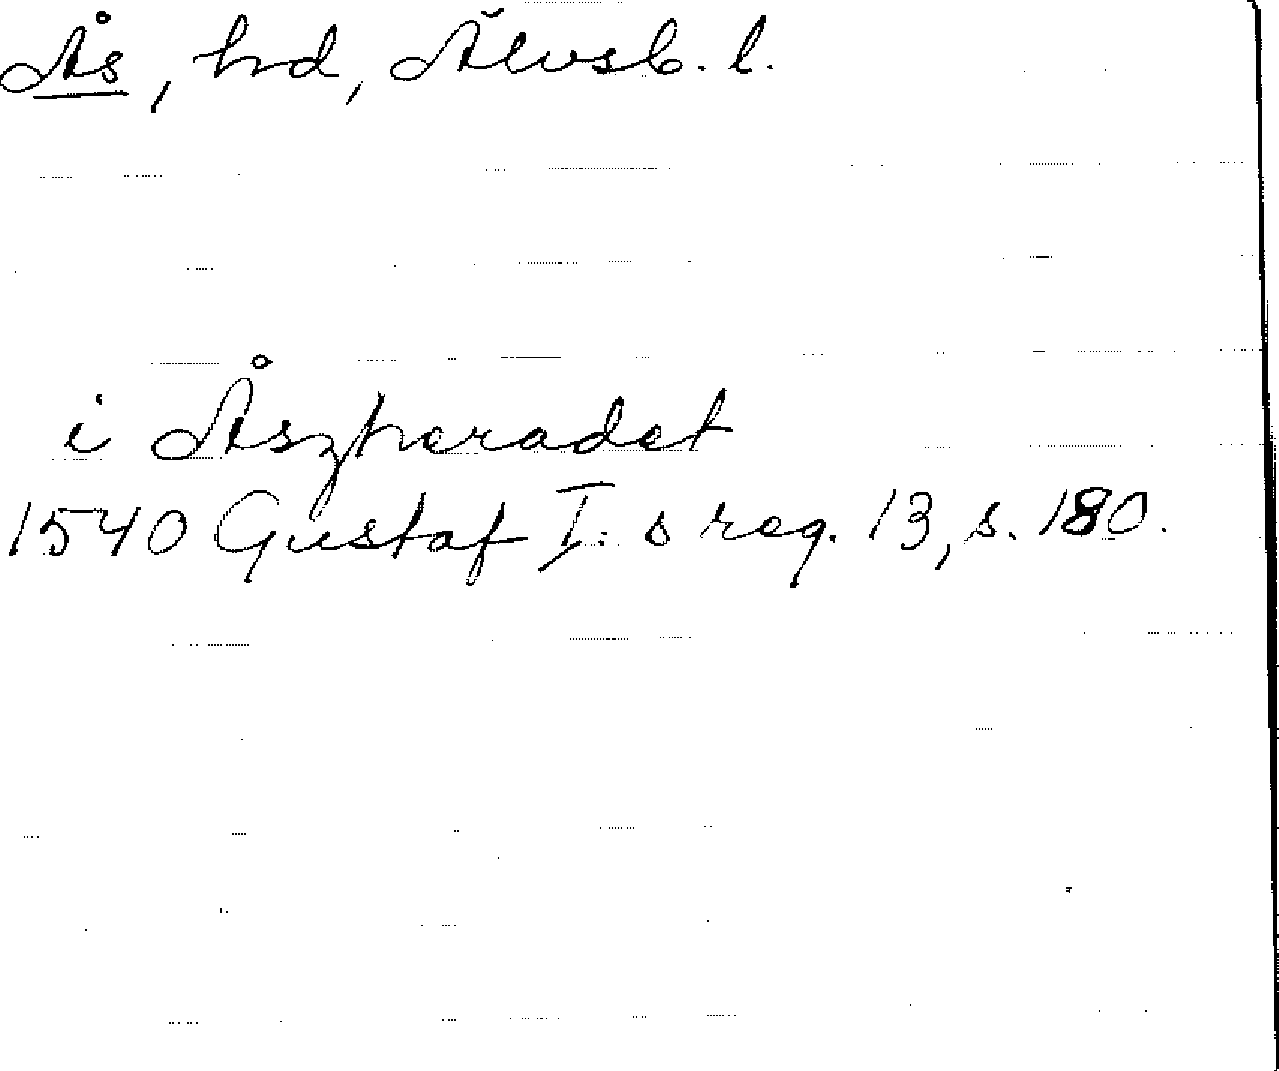 Ås, hd, Älvsb. l.
i Åszheradet
1540 Gustaf I:s reg. 13, s. 180.